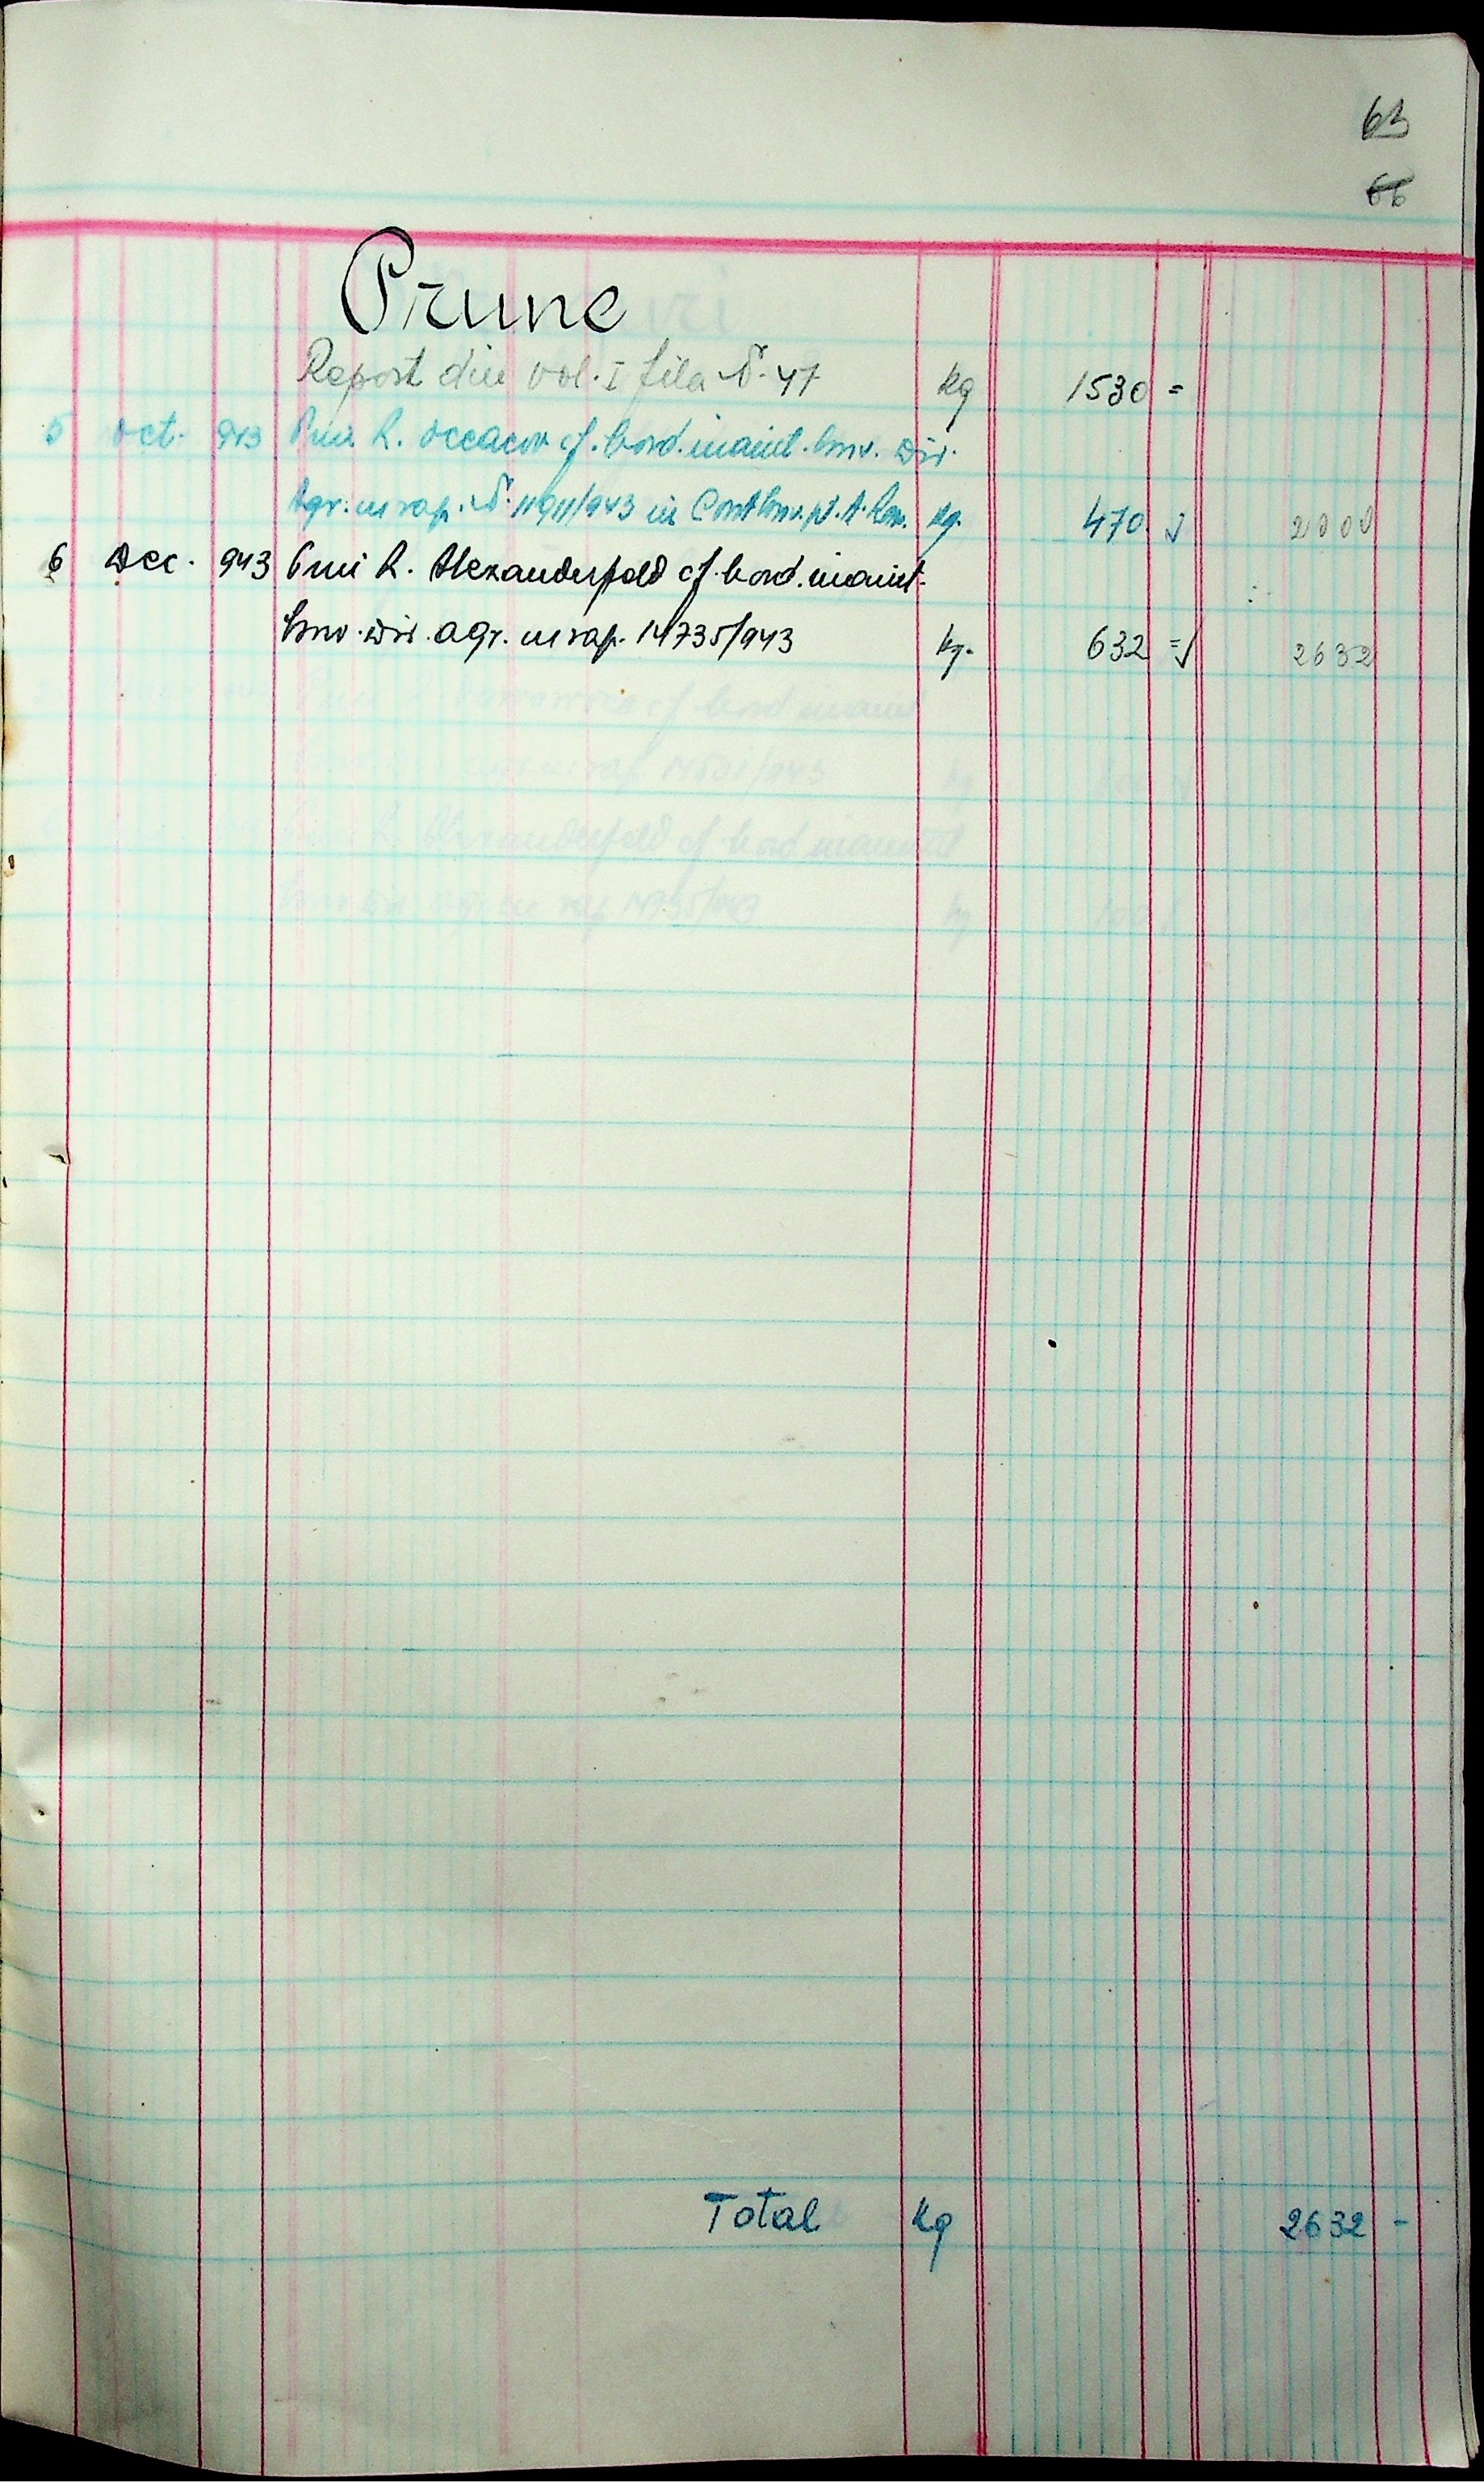 63
66
Prune
Report din vol. I fila № 47 kg 1530 =
5 Oct. 943 Prin R. Oceacov cf. bord. inaint. Dir.
Agr. cu rap. № 11911/943 in kg. 470 2000
6 Dec. 943 Prin R. Alexanderfeld cf. bord. inaint.
Dir. Agr. cu rap. 14735/943 kg. 632 = 2632
Total Kg 2632 -